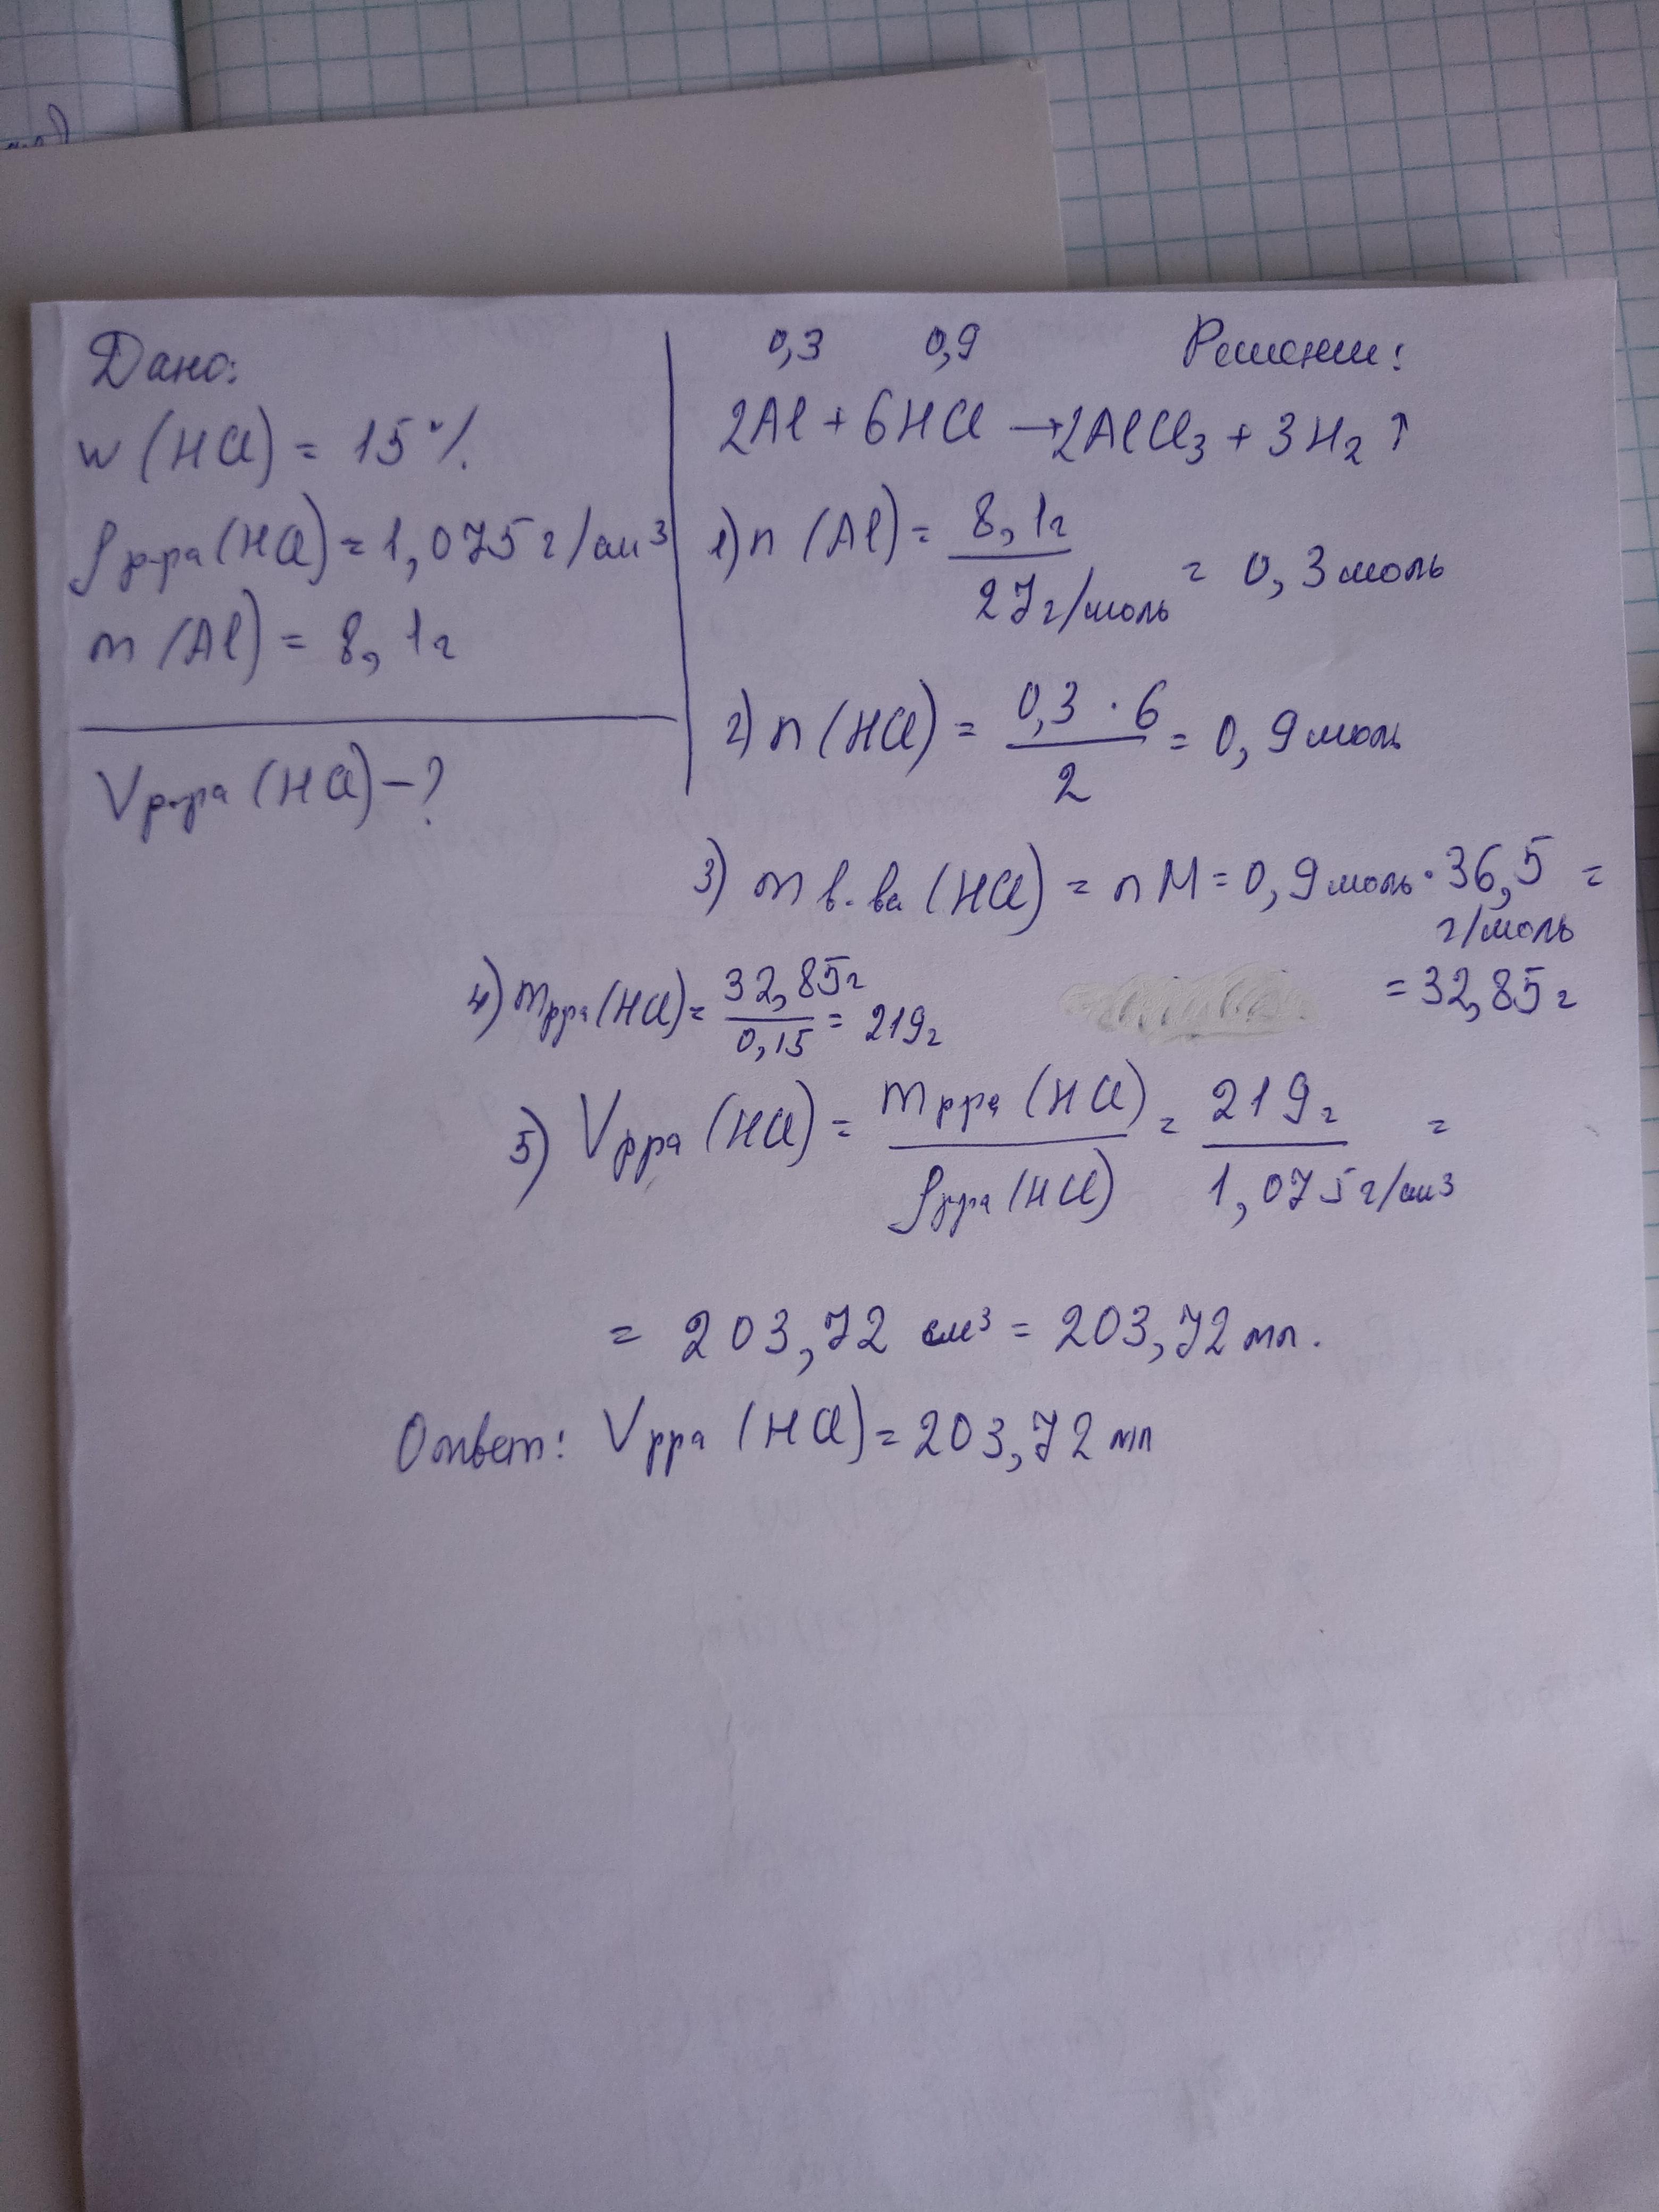 Дано:
w (HCl) = 15 %
ρ р-ра (HCl) = 1,075 г/см³
m (Al) = 8, 1г
V р-ра (HCl) – ?
0,3 0,9 Решение:
2Al + 6HCl → 2AlCl₃ + 3H₂ ↑
1) n (Al) = 8, 1г / 27 г/моль = 0, 3 моль
2) n (HCl) = 0,3 · 6 / 2 = 0, 9 моль
3) m в-ва (HCl) = n M = 0, 9 моль · 36,5 г/моль =
= 32,85 г
4) m рра (HCl) = 32,85г / 0,15 = 219 г
5) V рра (HCl) = m рра (HCl) / ρ рра (HCl) = 219 г / 1,075 г/см³ =
= 203,72 см³ = 203,72 мл.
Ответ: V рра (HCl) = 203,72 мл